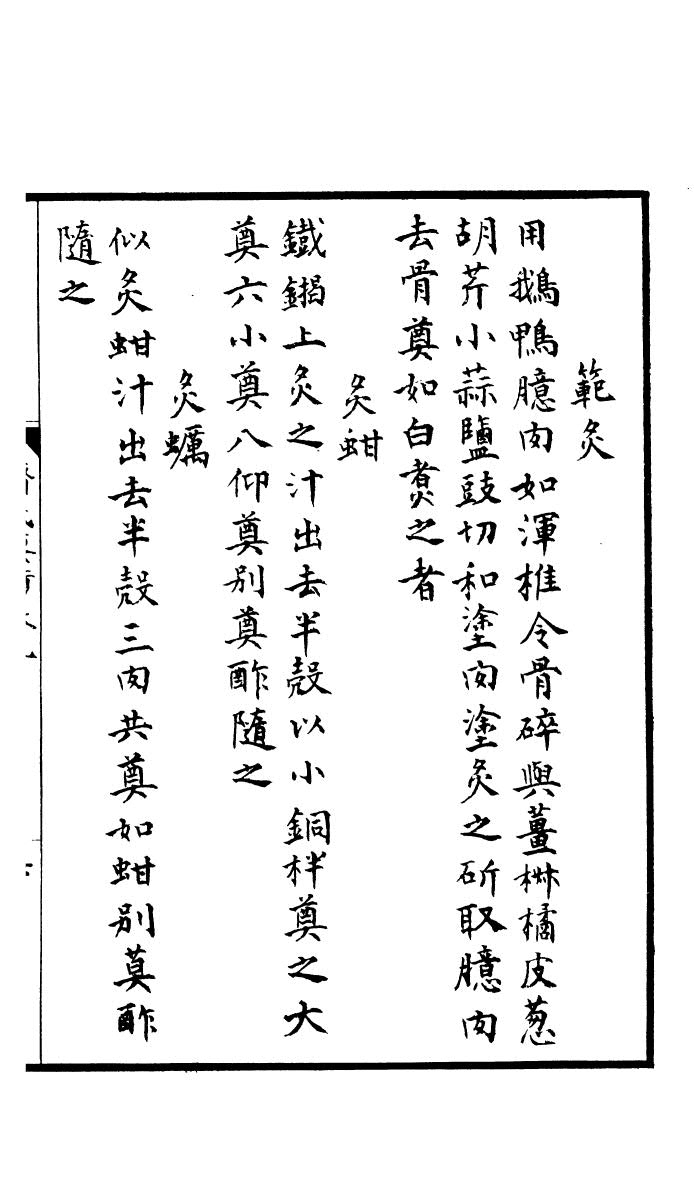 範炙
用鵝鴨臆肉如渾椎令骨碎與薑椒橘皮葱
胡芹小蒜鹽豉切和塗肉塗炙之斫取臆肉
去骨奠如白煑之者
炙蚶
鐵鍻上炙之汁出去半殼以小銅柈奠之大
奠六小奠八仰奠別奠酢隨之
炙蠣
似炙蚶汁出去半殼三肉共奠如蚶別奠酢
隨之